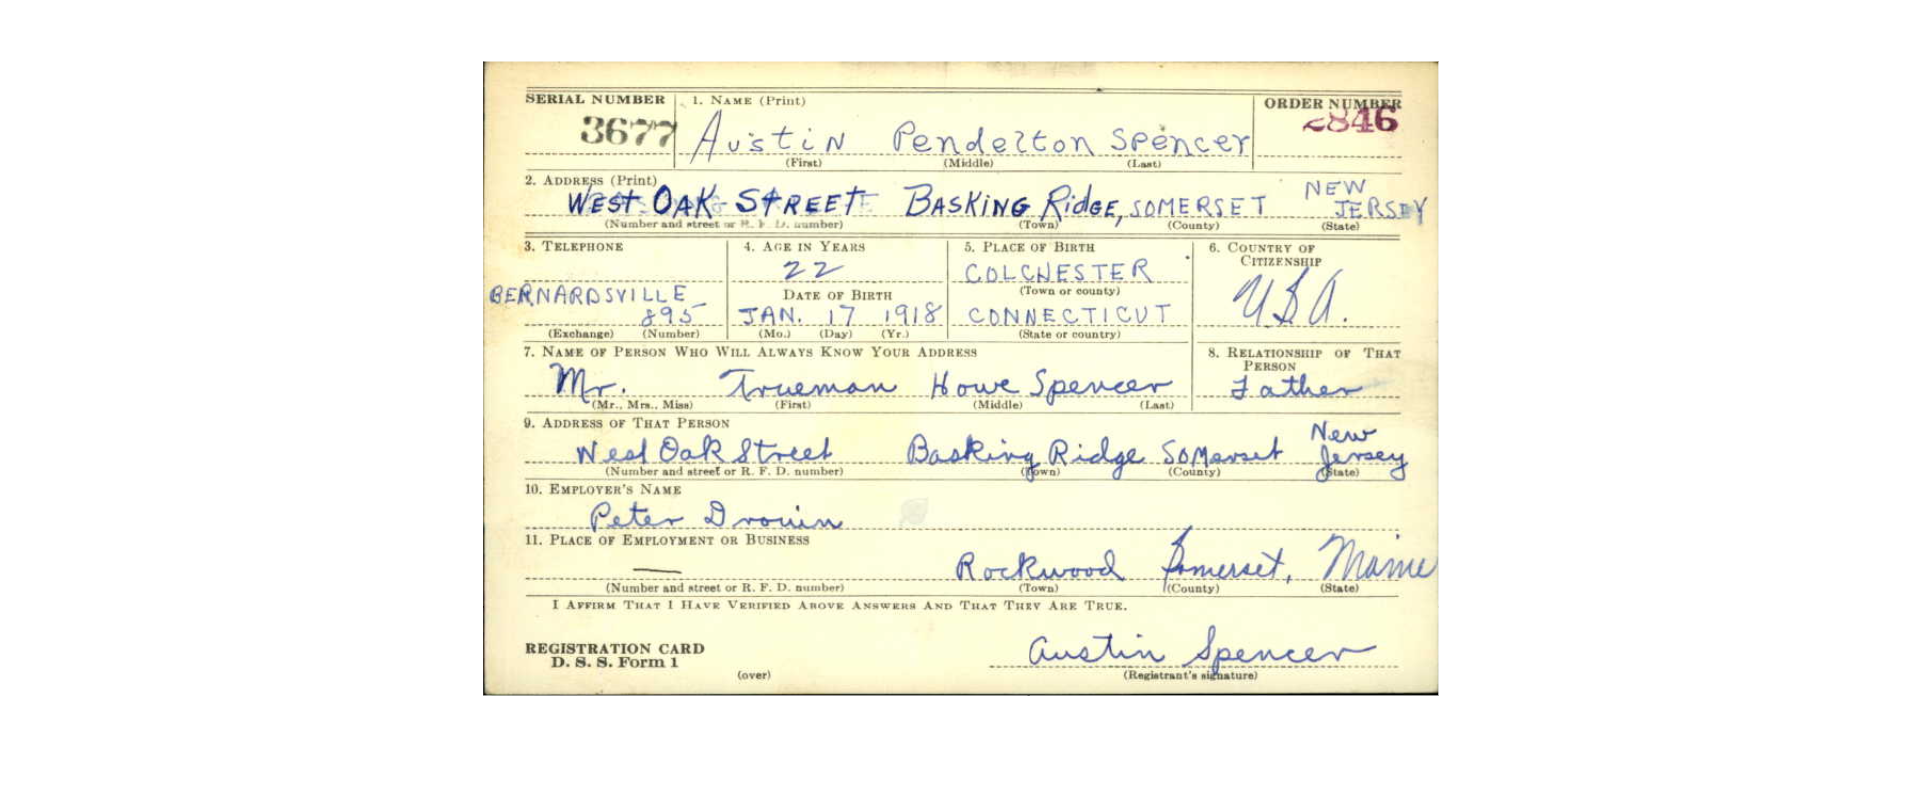 SERIAL NUMBER 1. NAME (Print) ORDER NUMBER
3677 Austin Pendelton Spencer 2846
(First) (Middle) (Last)
2. ADDRESS (Print)
WEST OAK STREET BASKING RIDGE, SOMERSET NEW JERSEY
(Number and street or R. F. D. number) (Town) (County) (State)
3. TELEPHONE 4. AGE IN YEARS 5. PLACE OF BIRTH 6. COUNTRY OF CITIZENSHIP
22 COLCHESTER
(Town or county)
BERNARDSVILLE DATE OF BIRTH U.S.A.
895 JAN. 17 1918 CONNECTICUT
(Exchange) (Number) (Mo.) (Day) (Yr.) (State or country)
7. NAME OF PERSON WHO WILL ALWAYS KNOW YOUR ADDRESS 8. RELATIONSHIP OF THAT PERSON
Mr. Trueman Howe Spencer Father
(Mr., Mrs., Miss) (First) (Middle) (Last)
9. ADDRESS OF THAT PERSON
West Oak Street Basking Ridge Somerset New Jersey
(Number and street or R. F. D. number) (Town) (County) (State)
10. EMPLOYER'S NAME
Peter Drouin
11. PLACE OF EMPLOYMENT OR BUSINESS
— Rockwood Somerset, Maine
(Number and street or R. F. D. number) (Town) (County) (State)
I AFFIRM THAT I HAVE VERIFIED ABOVE ANSWERS AND THAT THEY ARE TRUE.
REGISTRATION CARD Austin Spencer
D. S. S. Form 1
(over) (Registrant's signature)